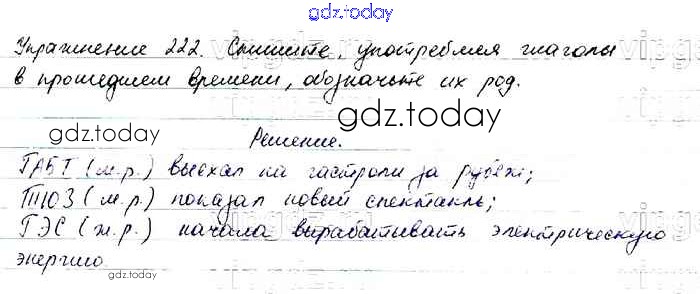 gdz.today
Упражнение 222. Спишите, употребляя глаголы
в прошедшем времени, обозначьте их род.
gdz.today
gdz.today
Решение.
ГАБТ (м.р.) выехал на гастроли за рубеж;
ТЮЗ (м.р.) показал новый спектакль;
ГЭС (ж.р.) начала вырабатывать электрическую
энергию
gdz.today